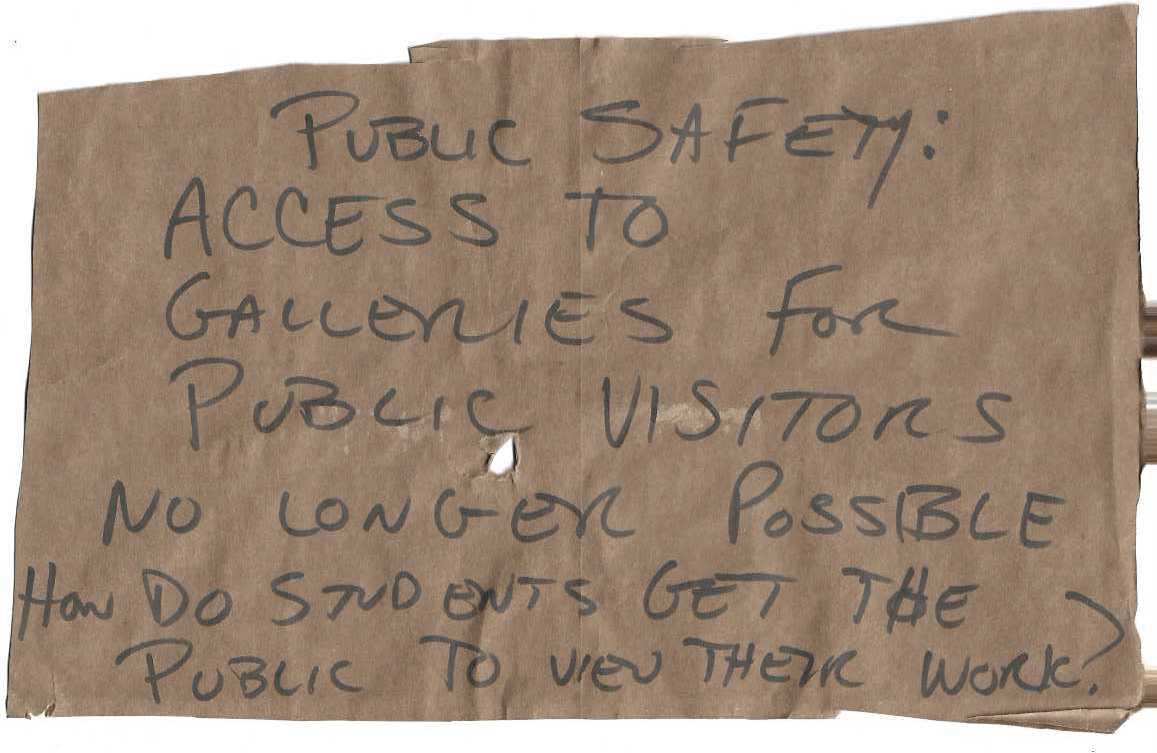 PUBLIC SAFETY:
ACCESS TO
GALLERIES FOR
PUBLIC VISITORS
NO LONGER POSSIBLE
HOW DO STUDENTS GET THE
PUBLIC TO VIEW THEIR WORK?